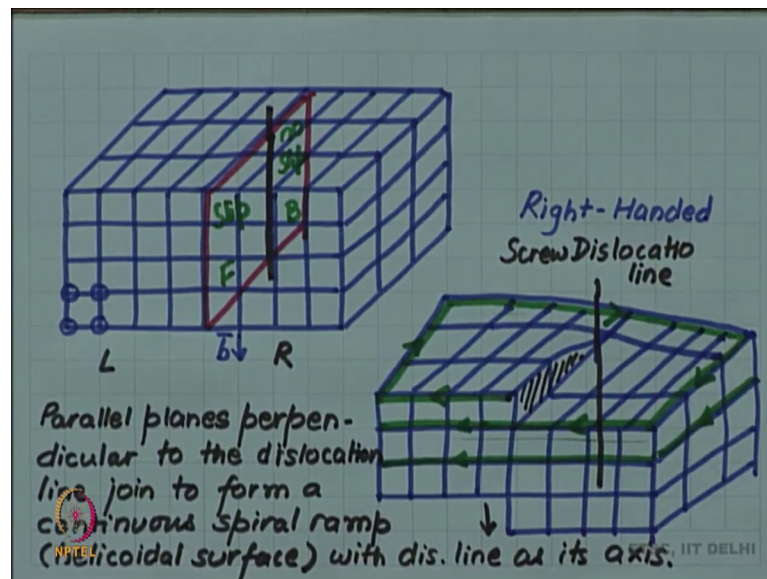 slip
no
slip
F
B
b
L
R
Right-Handed
Screw Dislocatio
line
Parallel planes perpen-
dicular to the dislocation
line join to form a
continuous spiral ramp
(helicoidal surface) with dis. line as its axis.
NPTEL
IIT DELHI